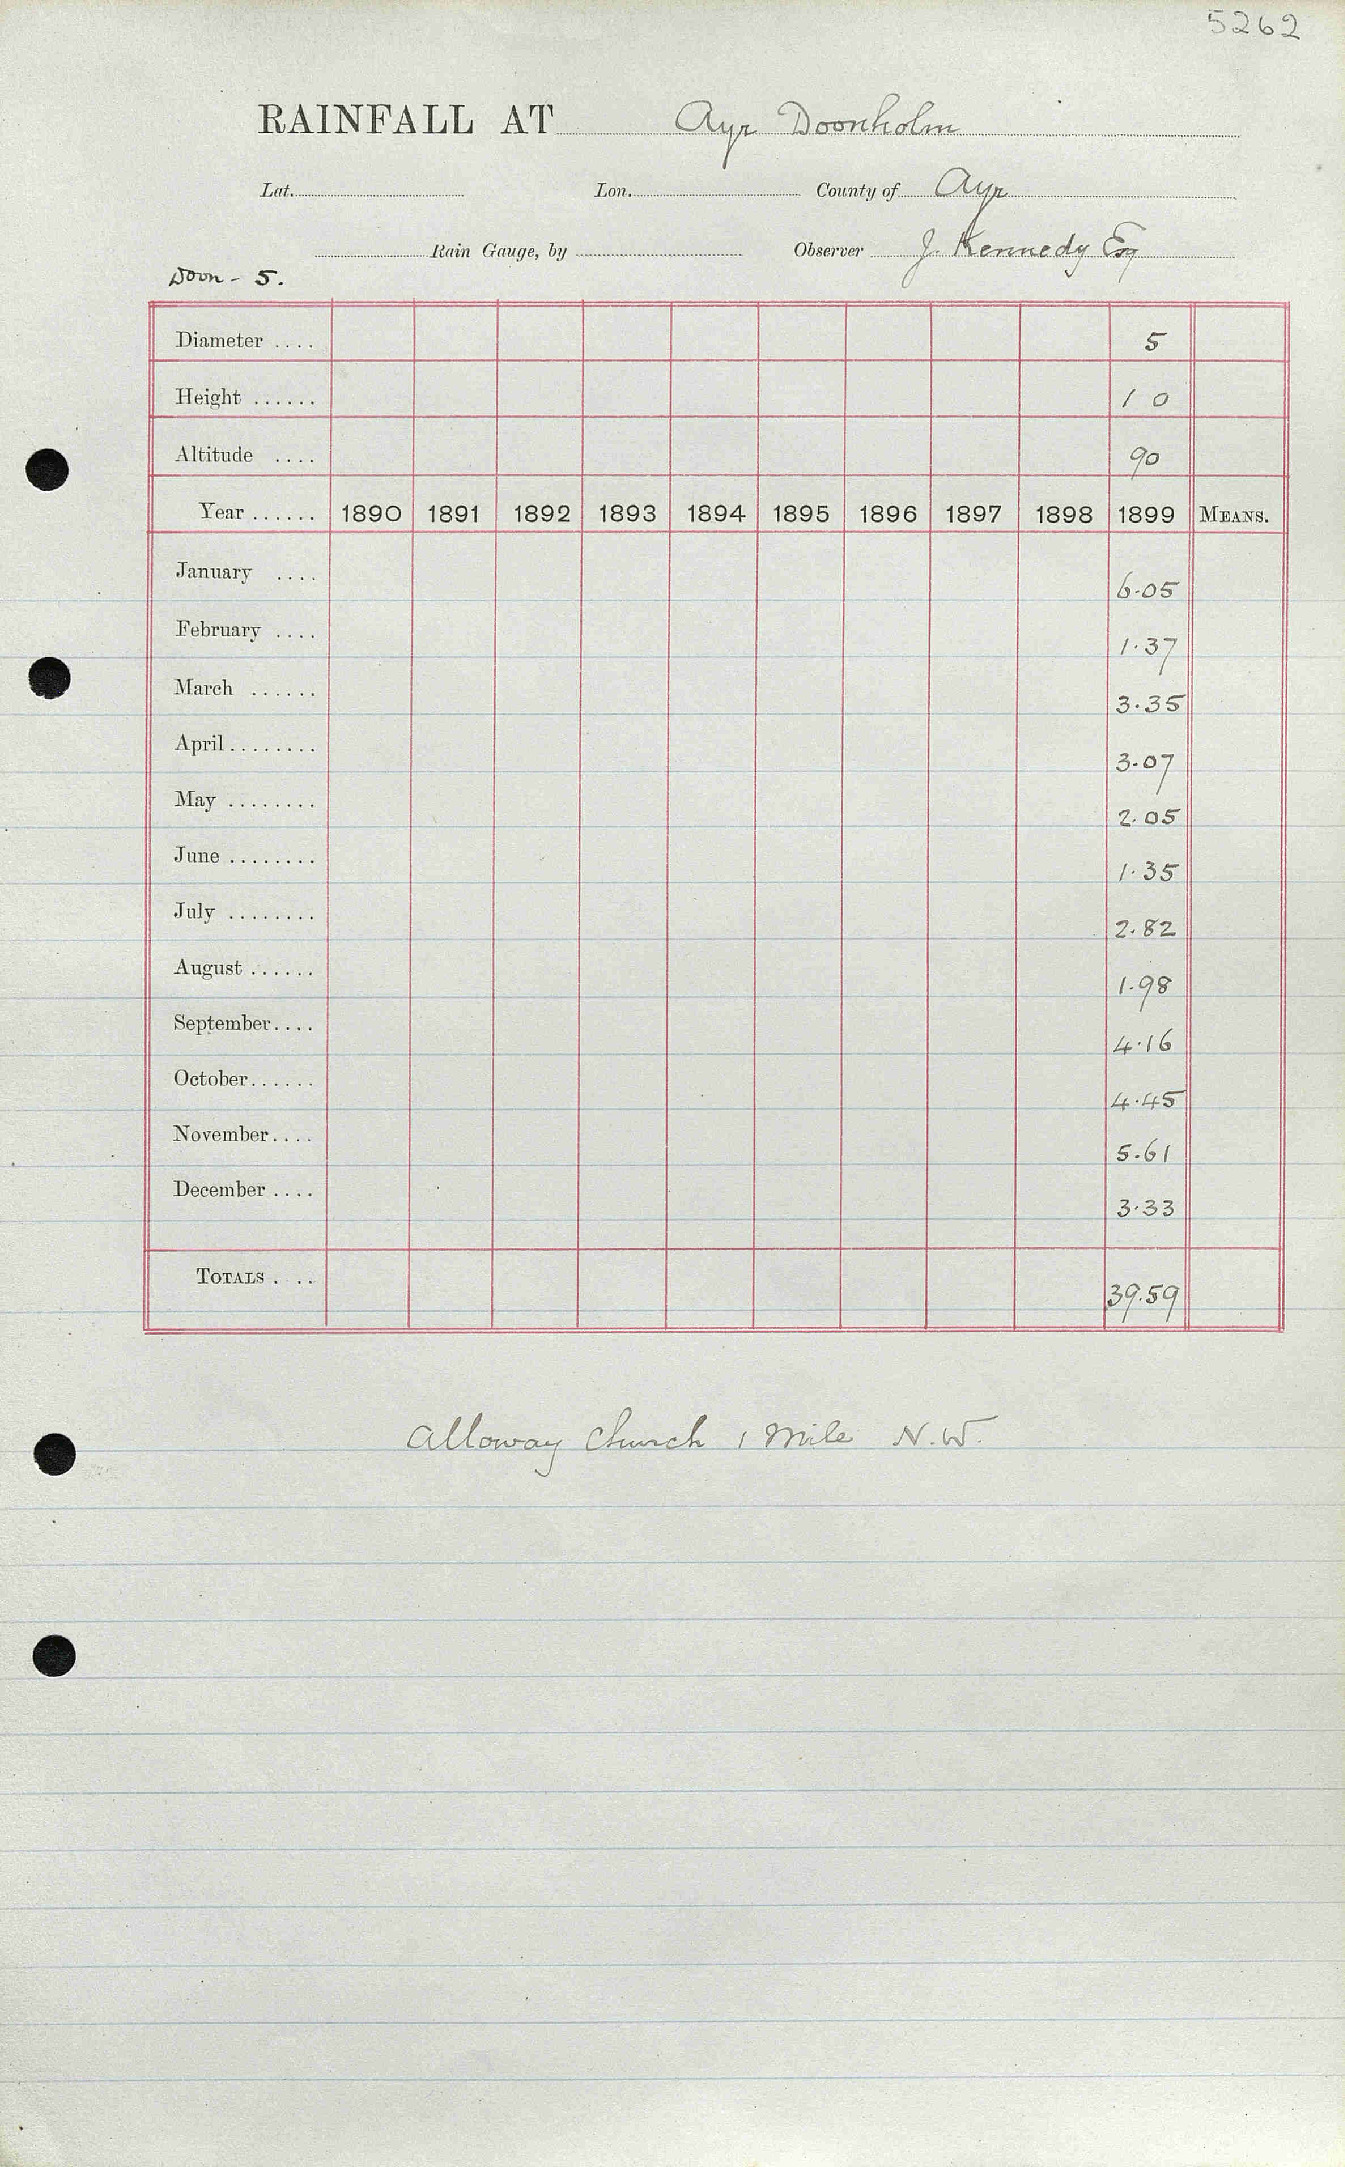 5262
RAINFALL AT Ayr Doonholm
Lat. Lon. County of Ayr
Rain Gauge, by Observer J. Kennedy Esq
Doon - 5.
Diameter .... 5
Height ...... 1 0
Altitude .... 90
Year ...... 1890 1891 1892 1893 1894 1895 1896 1897 1898 1899 MEANS.
January .... 6.05
February .... 1.37
March ...... 3.35
April ........ 3.07
May ........ 2.05
June ........ 1.35
July ........ 2.82
August ...... 1.98
September.... 4.16
October...... 4.45
November.... 5.61
December .... 3.33
TOTALS . .. 39.59
Alloway Church 1 Mile N.W.